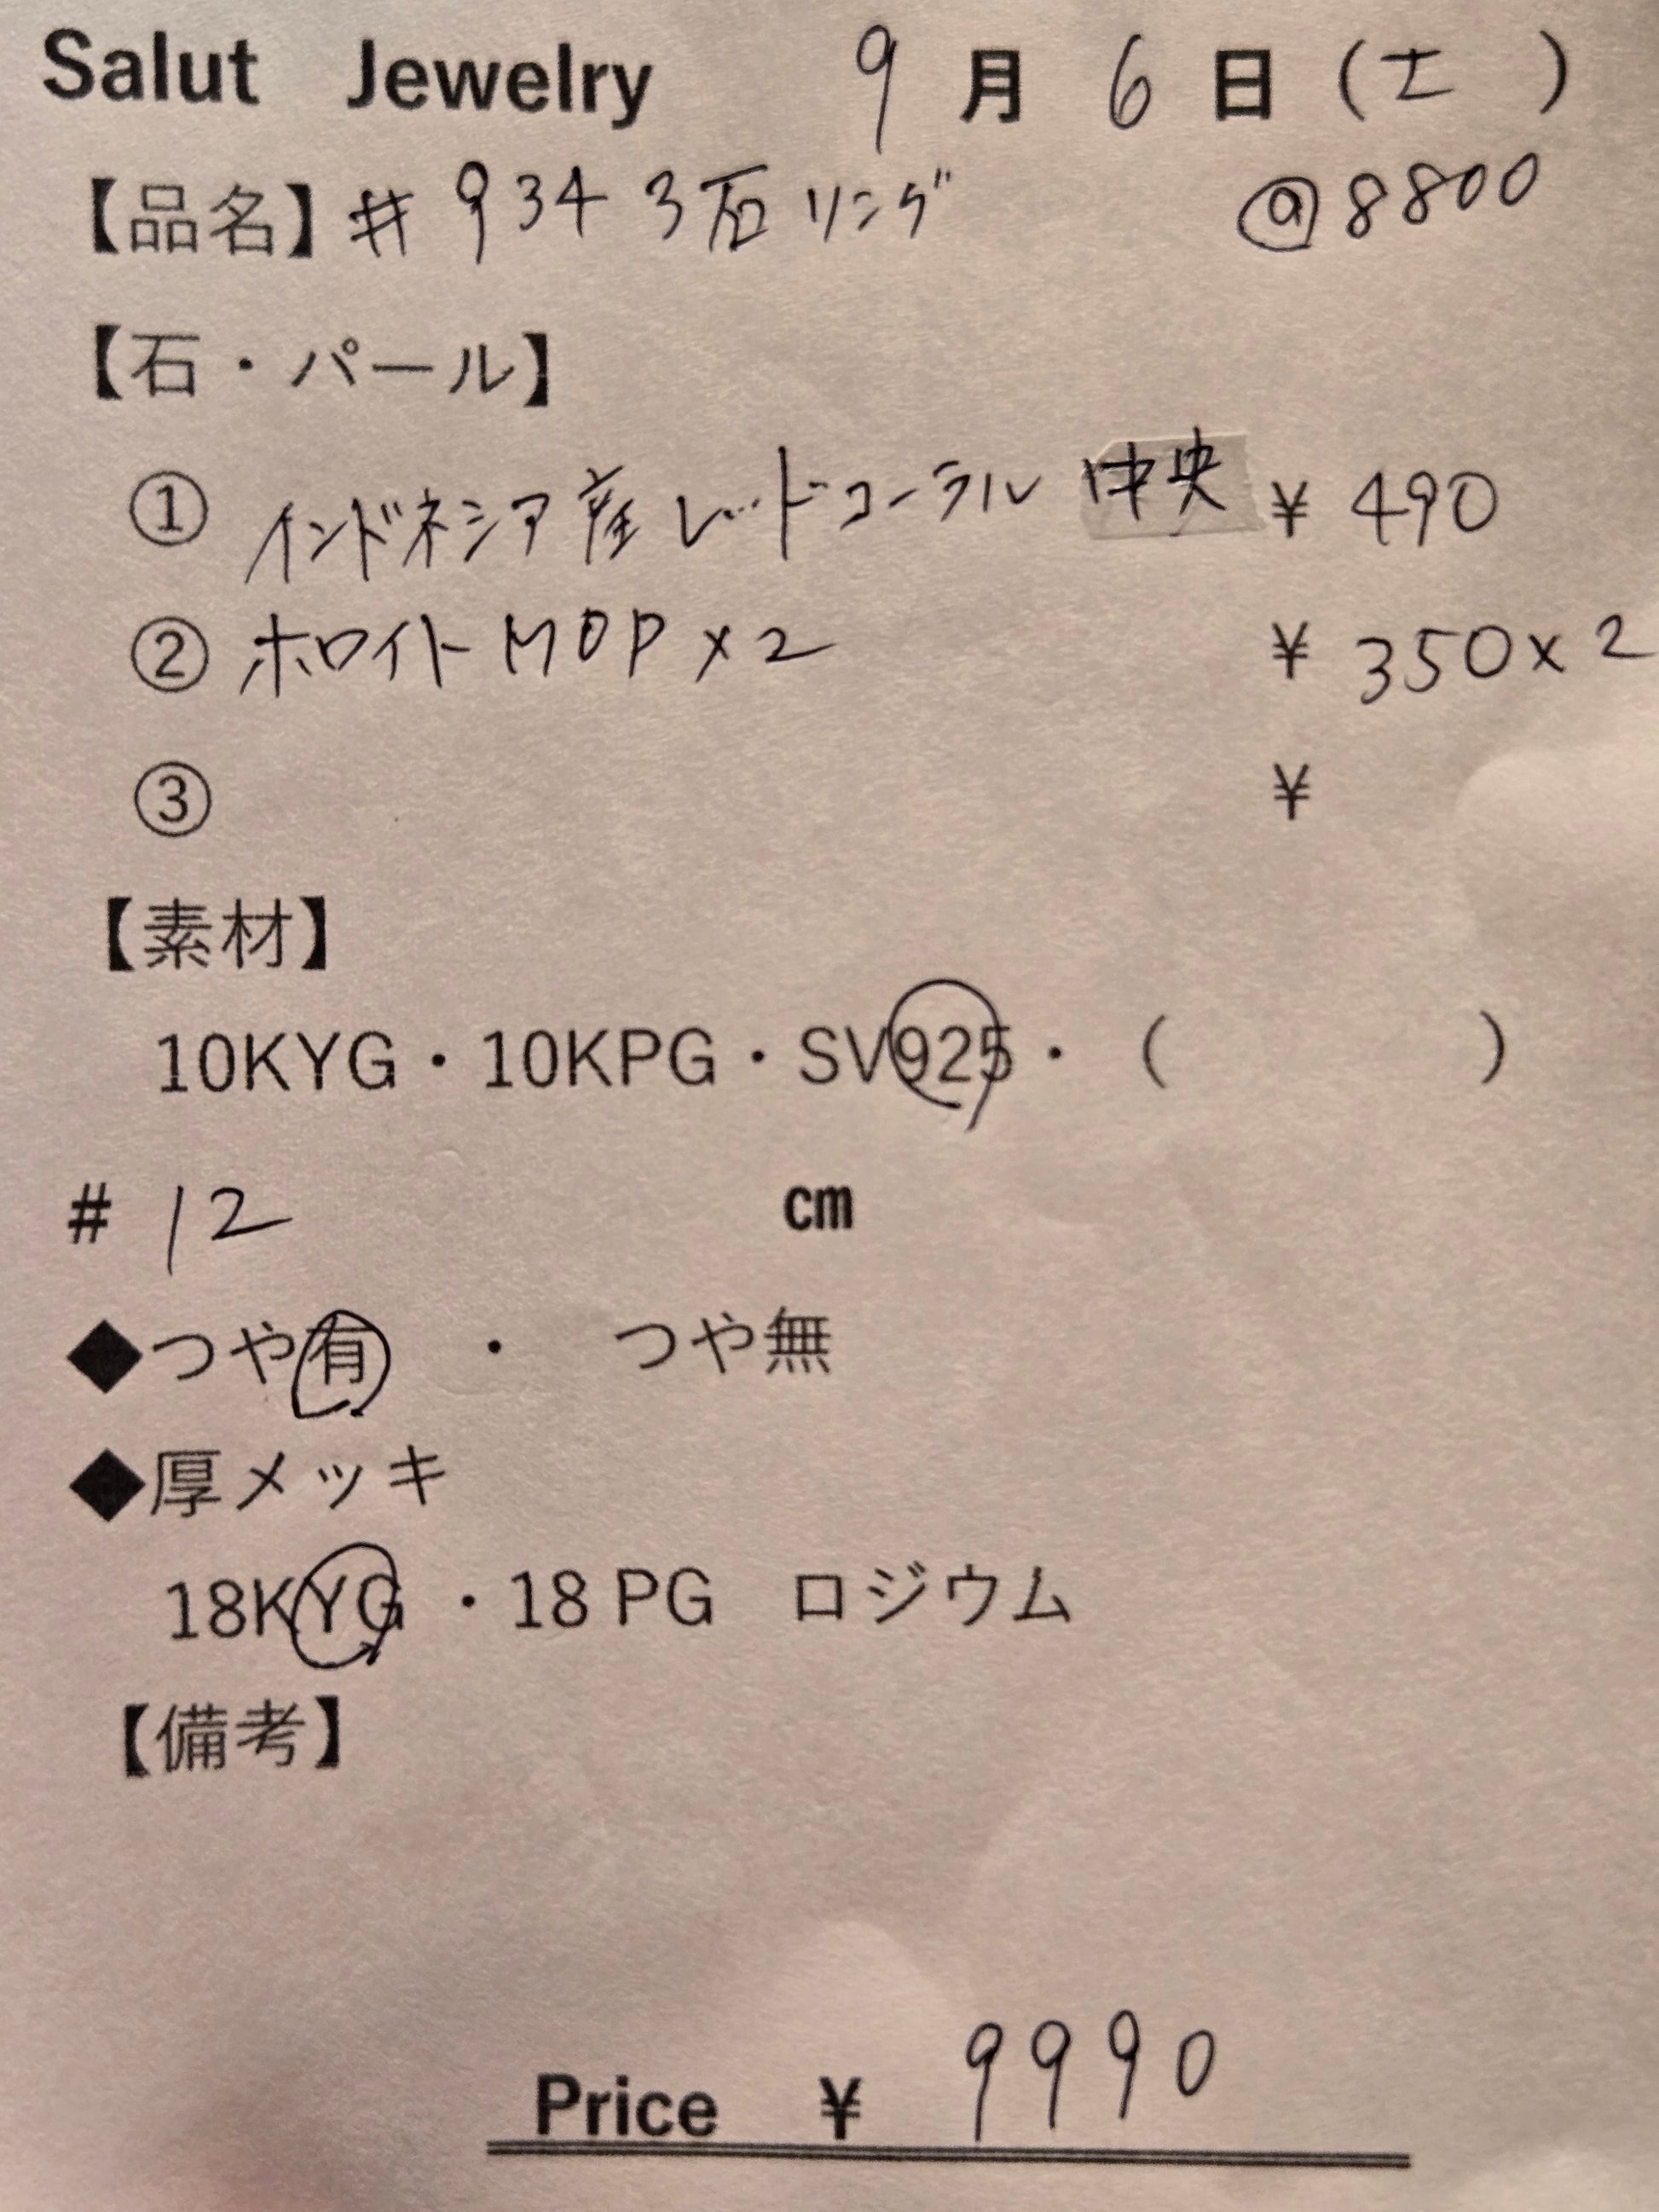 Salut Jewelry 9 月 6 日 (土 )
【品名】# 934 3石リング @8800
【石・パール】
① インドネシア産レッドコーラル 中央 ¥ 490
② ホワイトMOP×2 ¥ 350×2
③ ¥
【素材】
10KYG・10KPG・SV925・( )
# 12 cm
◆つや有 ・ つや無
◆厚メッキ
18KYG ・18 PG ロジウム
【備考】
Price ¥ 9990